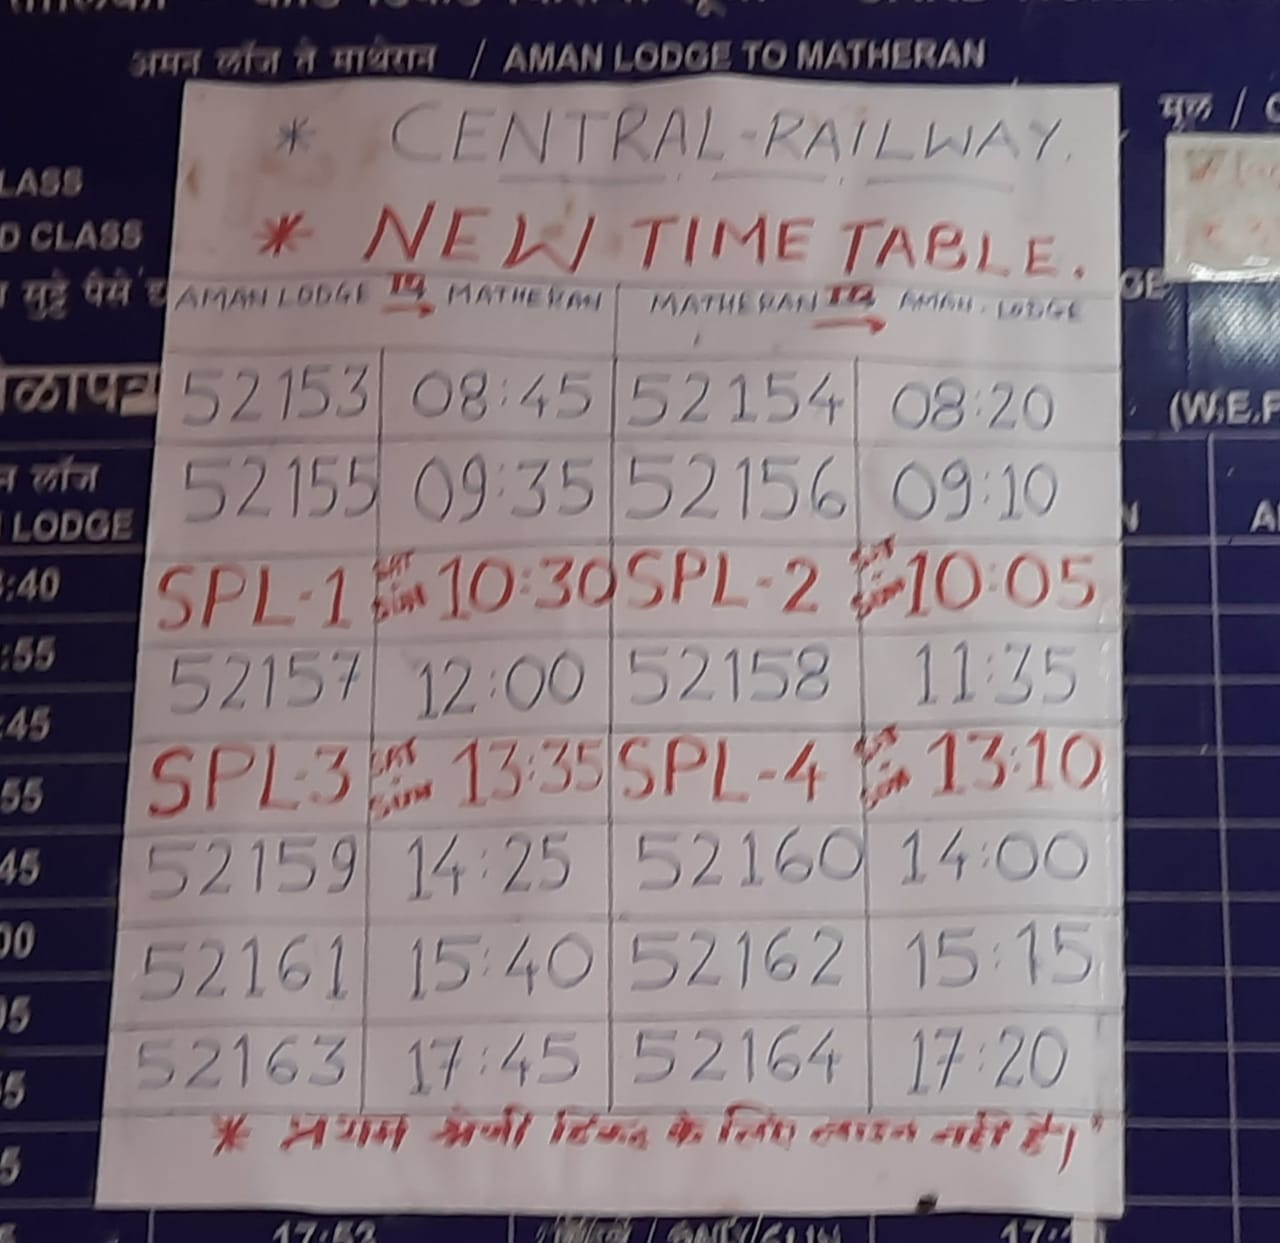 अमन लॉज ते माथेरान / AMAN LODGE TO MATHERAN
* CENTRAL-RAILWAY.
मूल /
LASS
D CLASS
* NEW TIME TABLE.
मुद्दे पैसे
AMAN LODGE TO → MATHERAN MATHERAN TO → AMAN. LODGE
ळापत्र 52153 08:45 52154 08:20 (W.E.F
लॉज 52155 09:35 52156 09:10
LODGE
:40 SPL-1 SAT SUN 10:30 SPL-2 SAT SUN 10:05
:55 52157 12:00 52158 11:35
:45 SPL-3 SAT SUN 13:35 SPL-4 SAT SUN 13:10
55
45 52159 14:25 52160 14:00
00 52161 15:40 52162 15:15
05
5 52163 17:45 52164 17:20
* प्रथम श्रेणी टिकट के लिए लाइन नहीं है।"
5
17:52